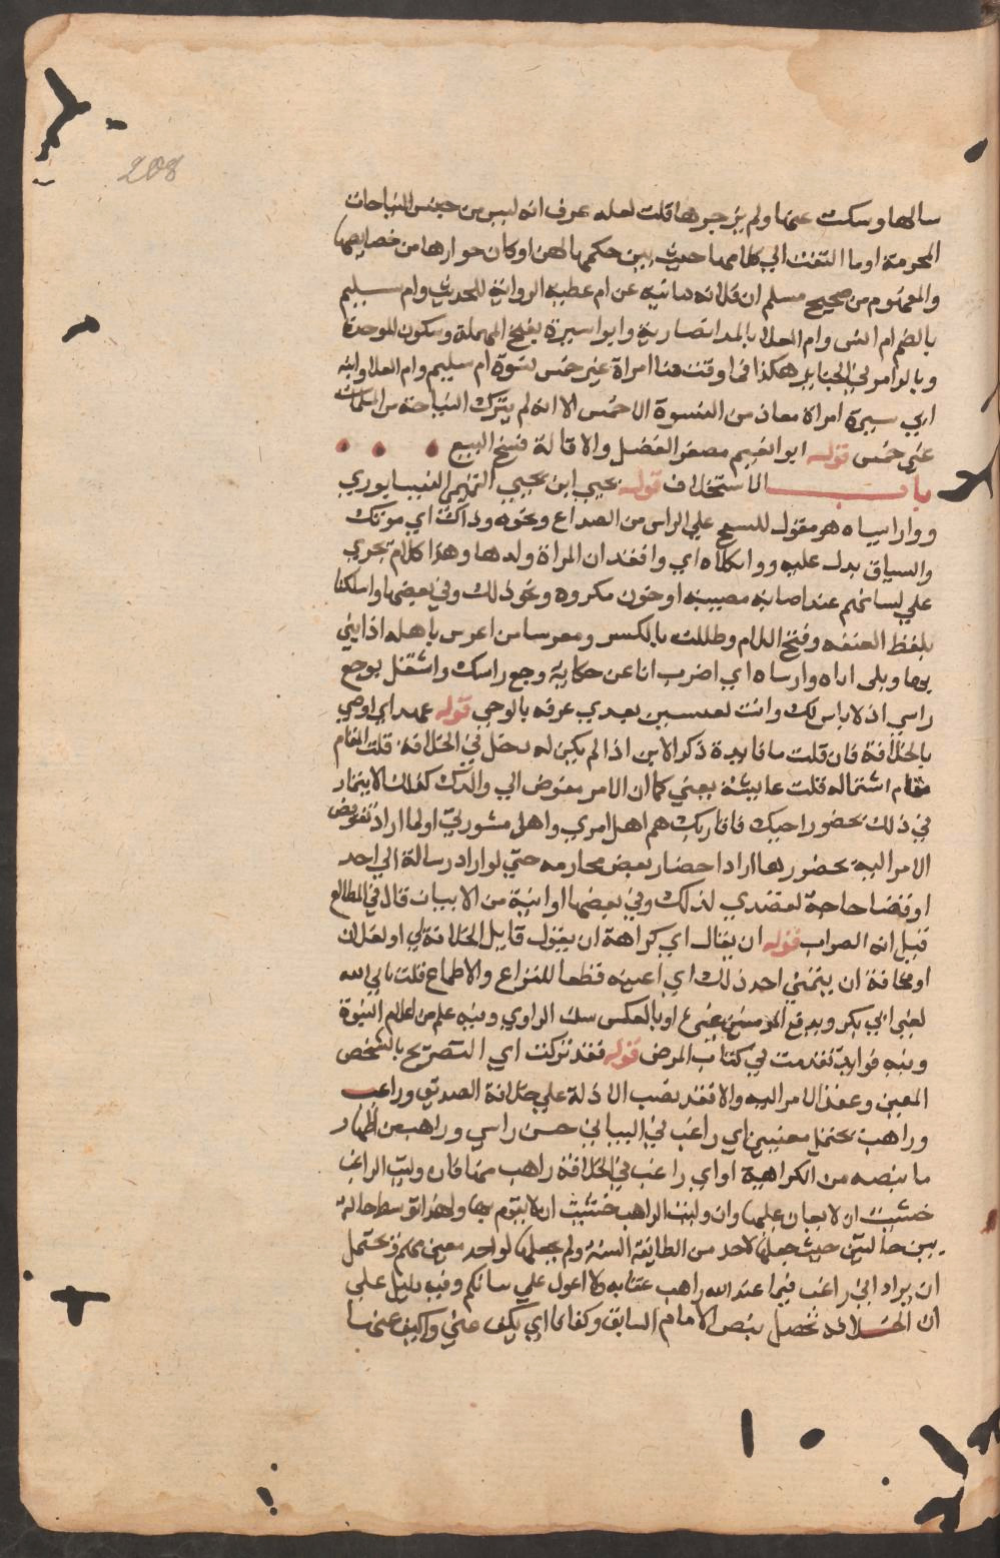 208
سالها وسكت عنها ولم يزجرها قلت لعله عرف انه ليس من جنس النياحات
المحرمة او ما التفت الي كلامها حديث بين حكمها لهن او كان جوازها من خصايصها
والمفهوم من صحيح مسلم ان فلانة ثانية عن ام عطية الرواية للحديث وام سليم
بالضم ام انس وام العلا بالمد انصارية وابو سبرة بفتح المهملة وسكون الموحدة
وبالرا مر في الجنايز هكذا فما وفت منا امراة غير خمس نسوة ام سليم وام العلا وابنة
ابي سبرة امراة معاذ من النسوة الا خمس لا انه لم يترك النياحة من المسلمات
غير خمس قوله ابو نعيم مصغر الفضل والاقالة فسخ البيع
باب الاستخلاف قوله يحيي ابن يحيي التميمي النيسابوري
ووارايساه هو مقول المتفجع علي الراس من الصداع ونحوه وذاك اي موتك
والسياق يدل عليه وواثكلاه اي وافقدان المراة ولدها وهذا كلام يجري
علي لسانهم عند اصابة مصيبة او خوف مكروه ونحو ذلك وفي بعضها واثكلتا
بلفظ الصفة وفتح اللام وظللت بالكسر ومعرسا من اعرس باهله اذا بني
بها وبل انا وارساه اي اضرب انا عن حكاية وجع راسك واشتغل بوجع
راسي اذ لا باس لك وانت تعيشين بعدي عرفه بالوحي قوله عهد اي اوصي
بالخلافة فان قلت ما فايدة ذكر الابن اذ لم يكن له دخل في الخلافة قلت المقام
مقام استمالة قلب عايشة يعني كما ان الامر مفوض الي والدك كذلك الايتمار
في ذلك بحضور اخيك فاقاربك هم اهل امري واهل مشورتي او لما اراد تفويض
الامر اليه بحضورها اراد احضار بعض محارمه حتي لو اراد رسالة الي احد
او قضا حاجة لتصدي لذلك وفي بعضها او اتيه من الاتيان قال في المطالع
قيل انه الصواب قوله ان يقال اي كراهة ان يقول قايل الخلافة لي او لفلان
او مخافة ان يتمني احد ذلك اي اعينه قطعا للنزاع والاطماع قلت يابي الله
لغير ابي بكر ويدفع المومنون غيره او بالعكس شك الراوي وفيه علم من اعلام النبوة
وفيه فوايد تقدمت في كتاب المرض قوله فقد تركت اي التصريح بالشخص
المعين وعقد الامر اليه والا فقد نصب الادلة علي خلافة الصديق وراغب
وراهب يحتمل معنيين اي راغب في الببا في حسن راسي وراهب من اظهار
ما بنصه من الكراهية او اي راغب في الخلافة راهب منها فان وليت الراغب
خشيت ان لا يعان عليها وان وليت الراهب خشيت ان لا يقوم بها ولهذا توسط حاله
بين حالتين حيث جعلها لاحد من الطايفة الستة ولم يجعلها لواحد معين منهم ويحتمل
ان يراد اني راغب فيما عند الله راهب عقابه فلا اعول علي ثنائكم وفيه دليل علي
ان الخلافة تحصل بنص الامام السابق وكفافا اي يكف عني واكف عنها